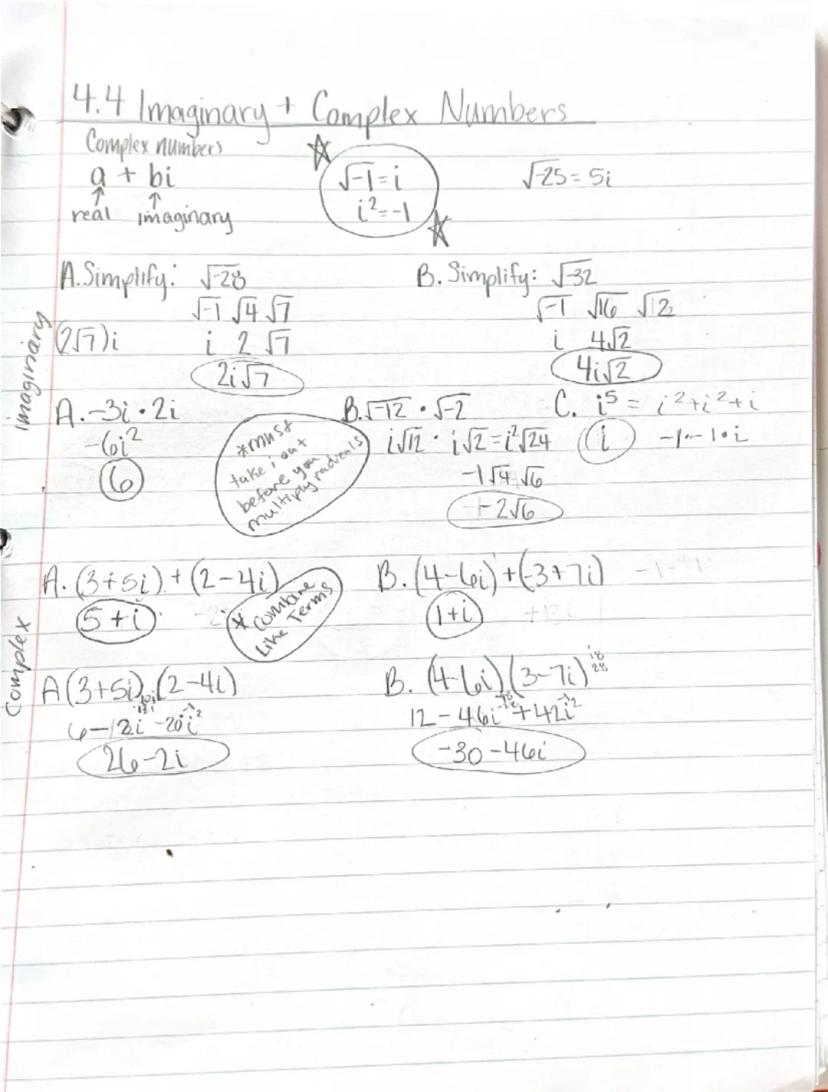 4.4 Imaginary + Complex Numbers
Complex numbers
a + bi
real imaginary
√-1 = i
i² = -1
√-25 = 5i
Imaginary
A. Simplify: √-28
√-1 √4 √7
(2√7)i i 2 √7
2i√7
B. Simplify: √-32
√-1 √16 √2
i 4√2
4i√2
A. -3i · 2i
-6i²
6
*must
take i out
before you
multiply radicals
B. √-12 · √-2
i√12 · i√2 = i²√24
-1√4 √6
-2√6
C. i⁵ = i²+i²+i
i -1·-1·i
Complex
A. (3+5i) + (2-4i)
5+i
* combine
like terms
B. (4-6i) + (-3+7i)
1+i
A (3+5i) · (2-4i)
6-2i -20i²
26-2i
B. (4-6i)(3-7i) 18 28
12-46i +42i²
-30-46i